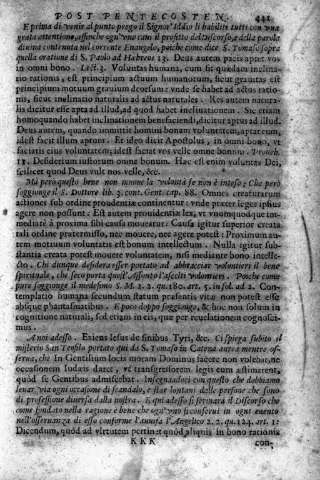 POST PENTECOSTEN. 441
E prima di venir al punto prego il Signor' Iddio li habiliti tutti con una
grata attentione, affinche ogn'uno cavi il profitto del discorso, e della parola
divina contenuta nel corrente Evangelo, poiche come dice S. Tomaso sopra
quella oratione di S. Paulo ad Hebreos 13. Deus autem pacis aptet vos
in omni bono. Lect. 3. Voluntas humana, cum sit quædam inclina-
tio rationis, est principium actuum humanorum, sicut gravitas est
principium motus gravium deorsum: unde se habet ad actus ratio-
nis, sicut inclinatio naturalis ad actus naturales. Res autem natura-
lis dicitur esse apta ad illud, ad quod habet inclinationem. Sic etiam
homo quando habet inclinationem benefaciendi, dicitur aptus ad illud.
Deus autem, quando immittit homini bonam voluntatem, aptat eum,
idest facit illum aptum. Et ideo dicit Apostolus, in omni bono, ut
faciatis eius voluntatem, idest faciat vos velle omne bonum. Proverb.
11. Desiderium iustorum omne bonum. Hac est enim voluntas Dei,
scilicet quod Deus vult nos velle, &c.
Ma però questo bene non muove la volontà se non è inteso; Che però
soggiunge il S. Dottore lib. 3. cont. Gent. cap. 88. Omnes creaturarum
actiones sub ordine prouidentiæ continentur: unde præter leges ipsius
agere non possunt. Est autem prouidentiæ lex, ut unumquodque im-
mediatè à proxima sibi causa moueatur. Causa igitur superior creata
tali ordine prætermisso, nec mouere, nec agere potest: Proximum au-
tem motiuum voluntatis est bonum intellectum. Nulla igitur sub-
stantia creata potest mouere voluntatem, nisi mediante bono intelle-
cto. Chi dunque desidera esser portato ad abbracciar volontieri il bene
spirituale, che seco porta quest'Assonto l'ascolti volontieri. Poiche come
pure soggiunge il medesimo S. M. 2. 2. qu. 180. art. 5. in sol. ad 2. Con-
templatio humana secundum statum præsentis vitæ non potest esse
absque phantasmatibus. E poco doppo soggiunge, & hoc non solum in
cognitione naturali, sed etiam in eis, quæ per reuelationem cognosci-
mus.
Anzi adesso. Exiens Iesus de finibus Tyri, &c. Ci spiega subito il
misterio San Teofilo portato qui da S. Tomaso in Catena aurea mentre os-
serva, che In Gentilium locis moram Dominus facere non voluit, ne
occasionem Iudæis daret, ut transgressorem legis eum æstimarent,
quod se Gentibus admiscebat. Insegnandoci con questo che dobbiamo
levar via ogni occasione di scandalo, e star lontani dalle persone che sono
di professione diversa dalla nostra. E, qui adesso si fermarà il Discorso che
come fondato nella ragione e bene che ogn'uno si conservi in ogni evento
nell'osservanza di esso conforme l'avvisa l'Angelico 2. 2. qu. 124. art. 1:
Dicendum, quòd ad virtutem pertinet quod aliquis in bono rationis
KKK con-